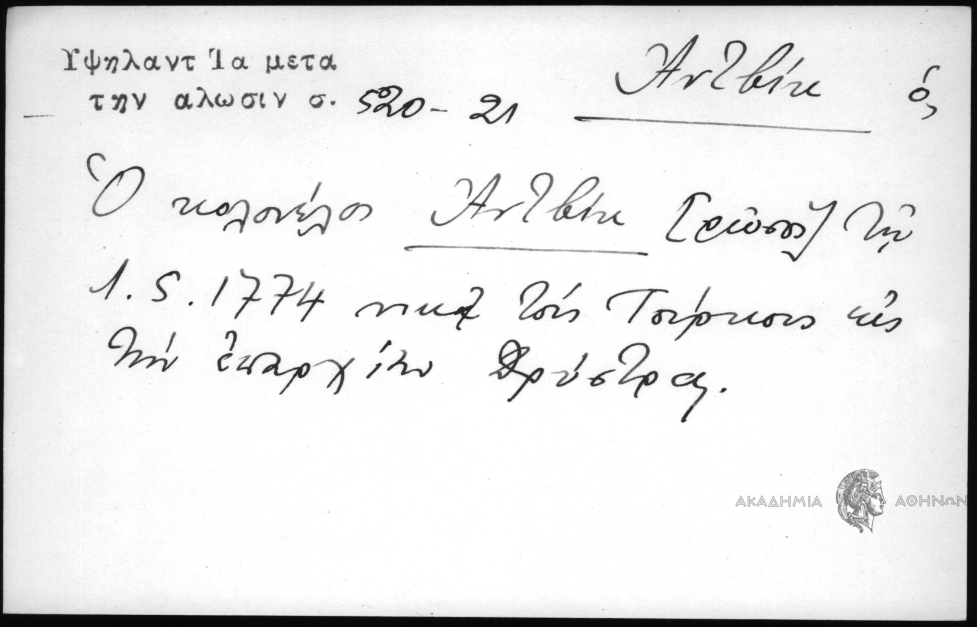 Υψηλαντ Ία μετα
την αλωσιν σ. 520-21
Ἀντβίκ ὁ,
Ὁ κολονέλος Ἀντβίκ [ρῶσος] τῇ
1.5.1774 νικᾷ τοὺς Τούρκους εἰς
τὴν ἐπαρχίαν Δρύστρας.
ΑΚΑΔΗΜΙΑ ΑΘΗΝΩΝ